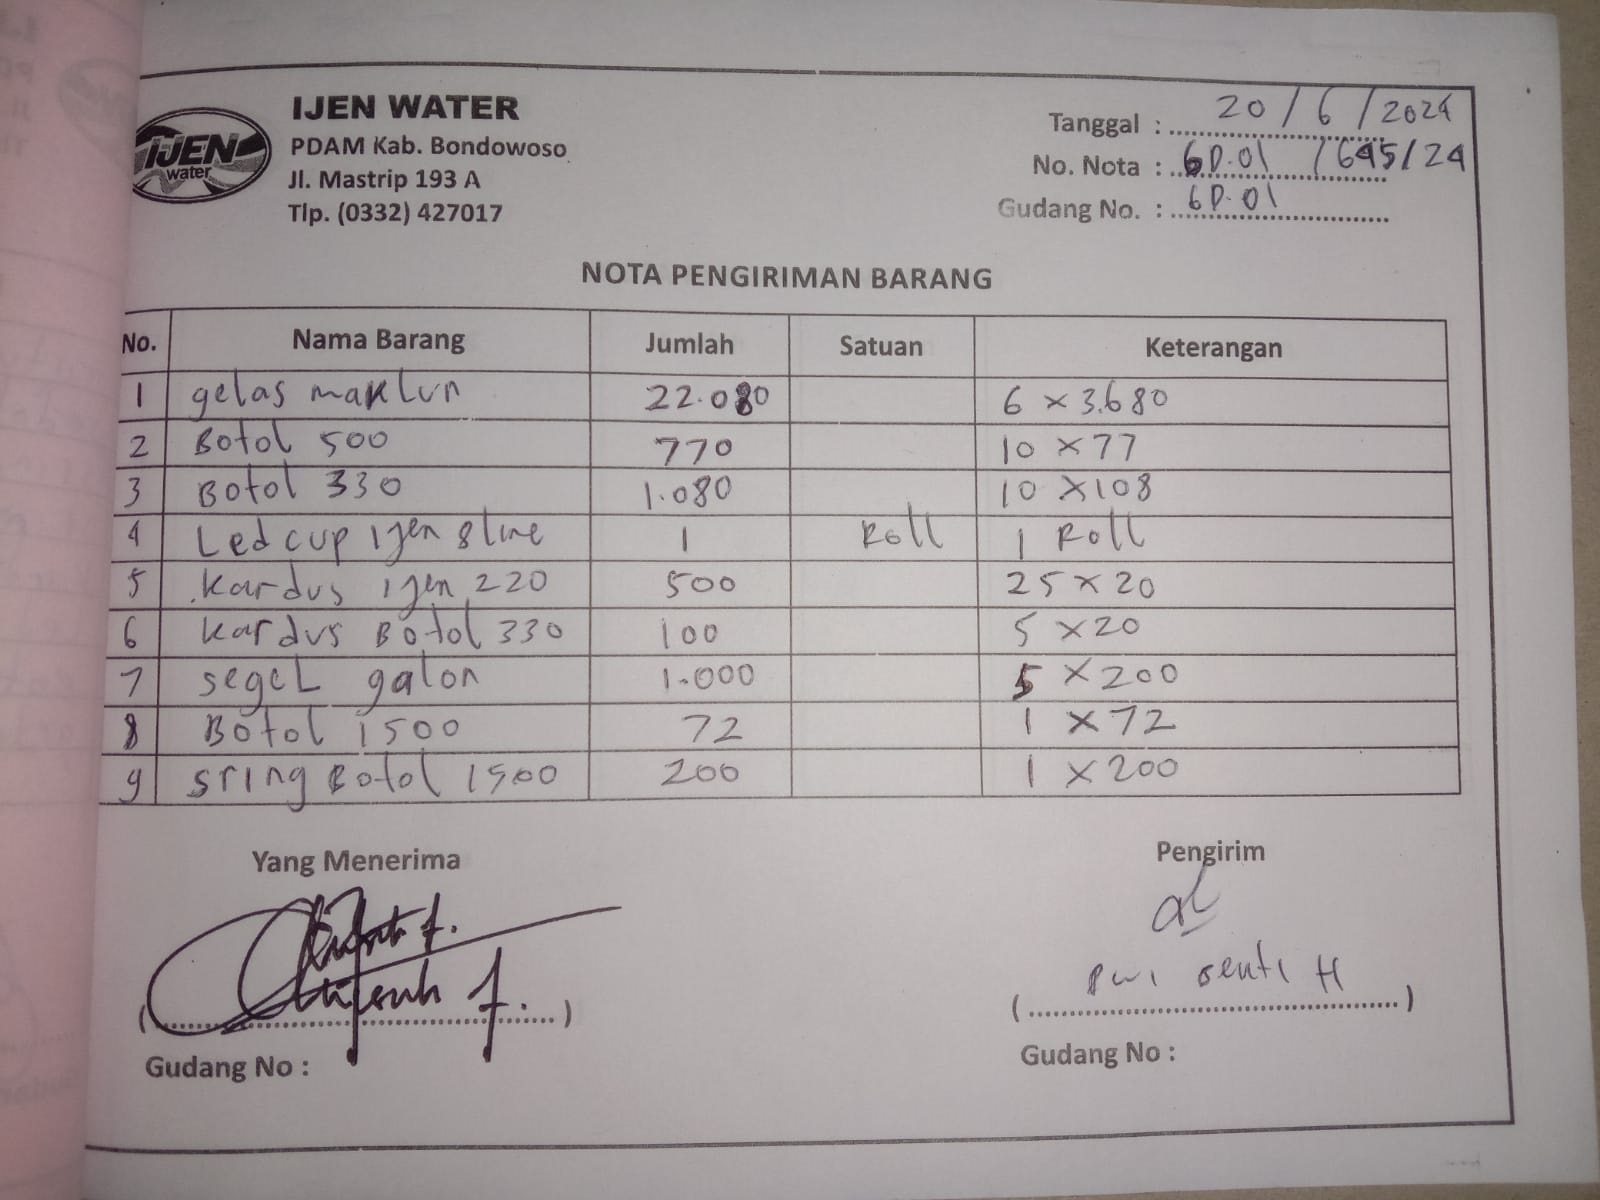 IJEN WATER
PDAM Kab. Bondowoso
Jl. Mastrip 193 A
Tlp. (0332) 427017
IJEN
water
Tanggal : 20 / 6 / 2024
No. Nota : GD.01 / 645/24
Gudang No. : GD.01
NOTA PENGIRIMAN BARANG
No. Nama Barang Jumlah Satuan Keterangan
1 gelas maklun 22.080 6 x 3.680
2 Botol 500 770 10 x 77
3 Botol 330 1.080 10 x 108
4 Led cup ijen 8 line 1 Roll 1 Roll
5 kardus ijen 220 500 25 x 20
6 kardus Botol 330 100 5 x 20
7 segel galon 1.000 5 x 200
8 Botol 1500 72 1 x 72
9 sring Botol 1500 200 1 x 200
Yang Menerima Pengirim
( ) ( H )
Gudang No : Gudang No :